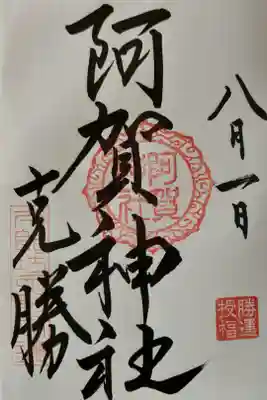 八月一日
阿賀神社
克勝
勝運授福